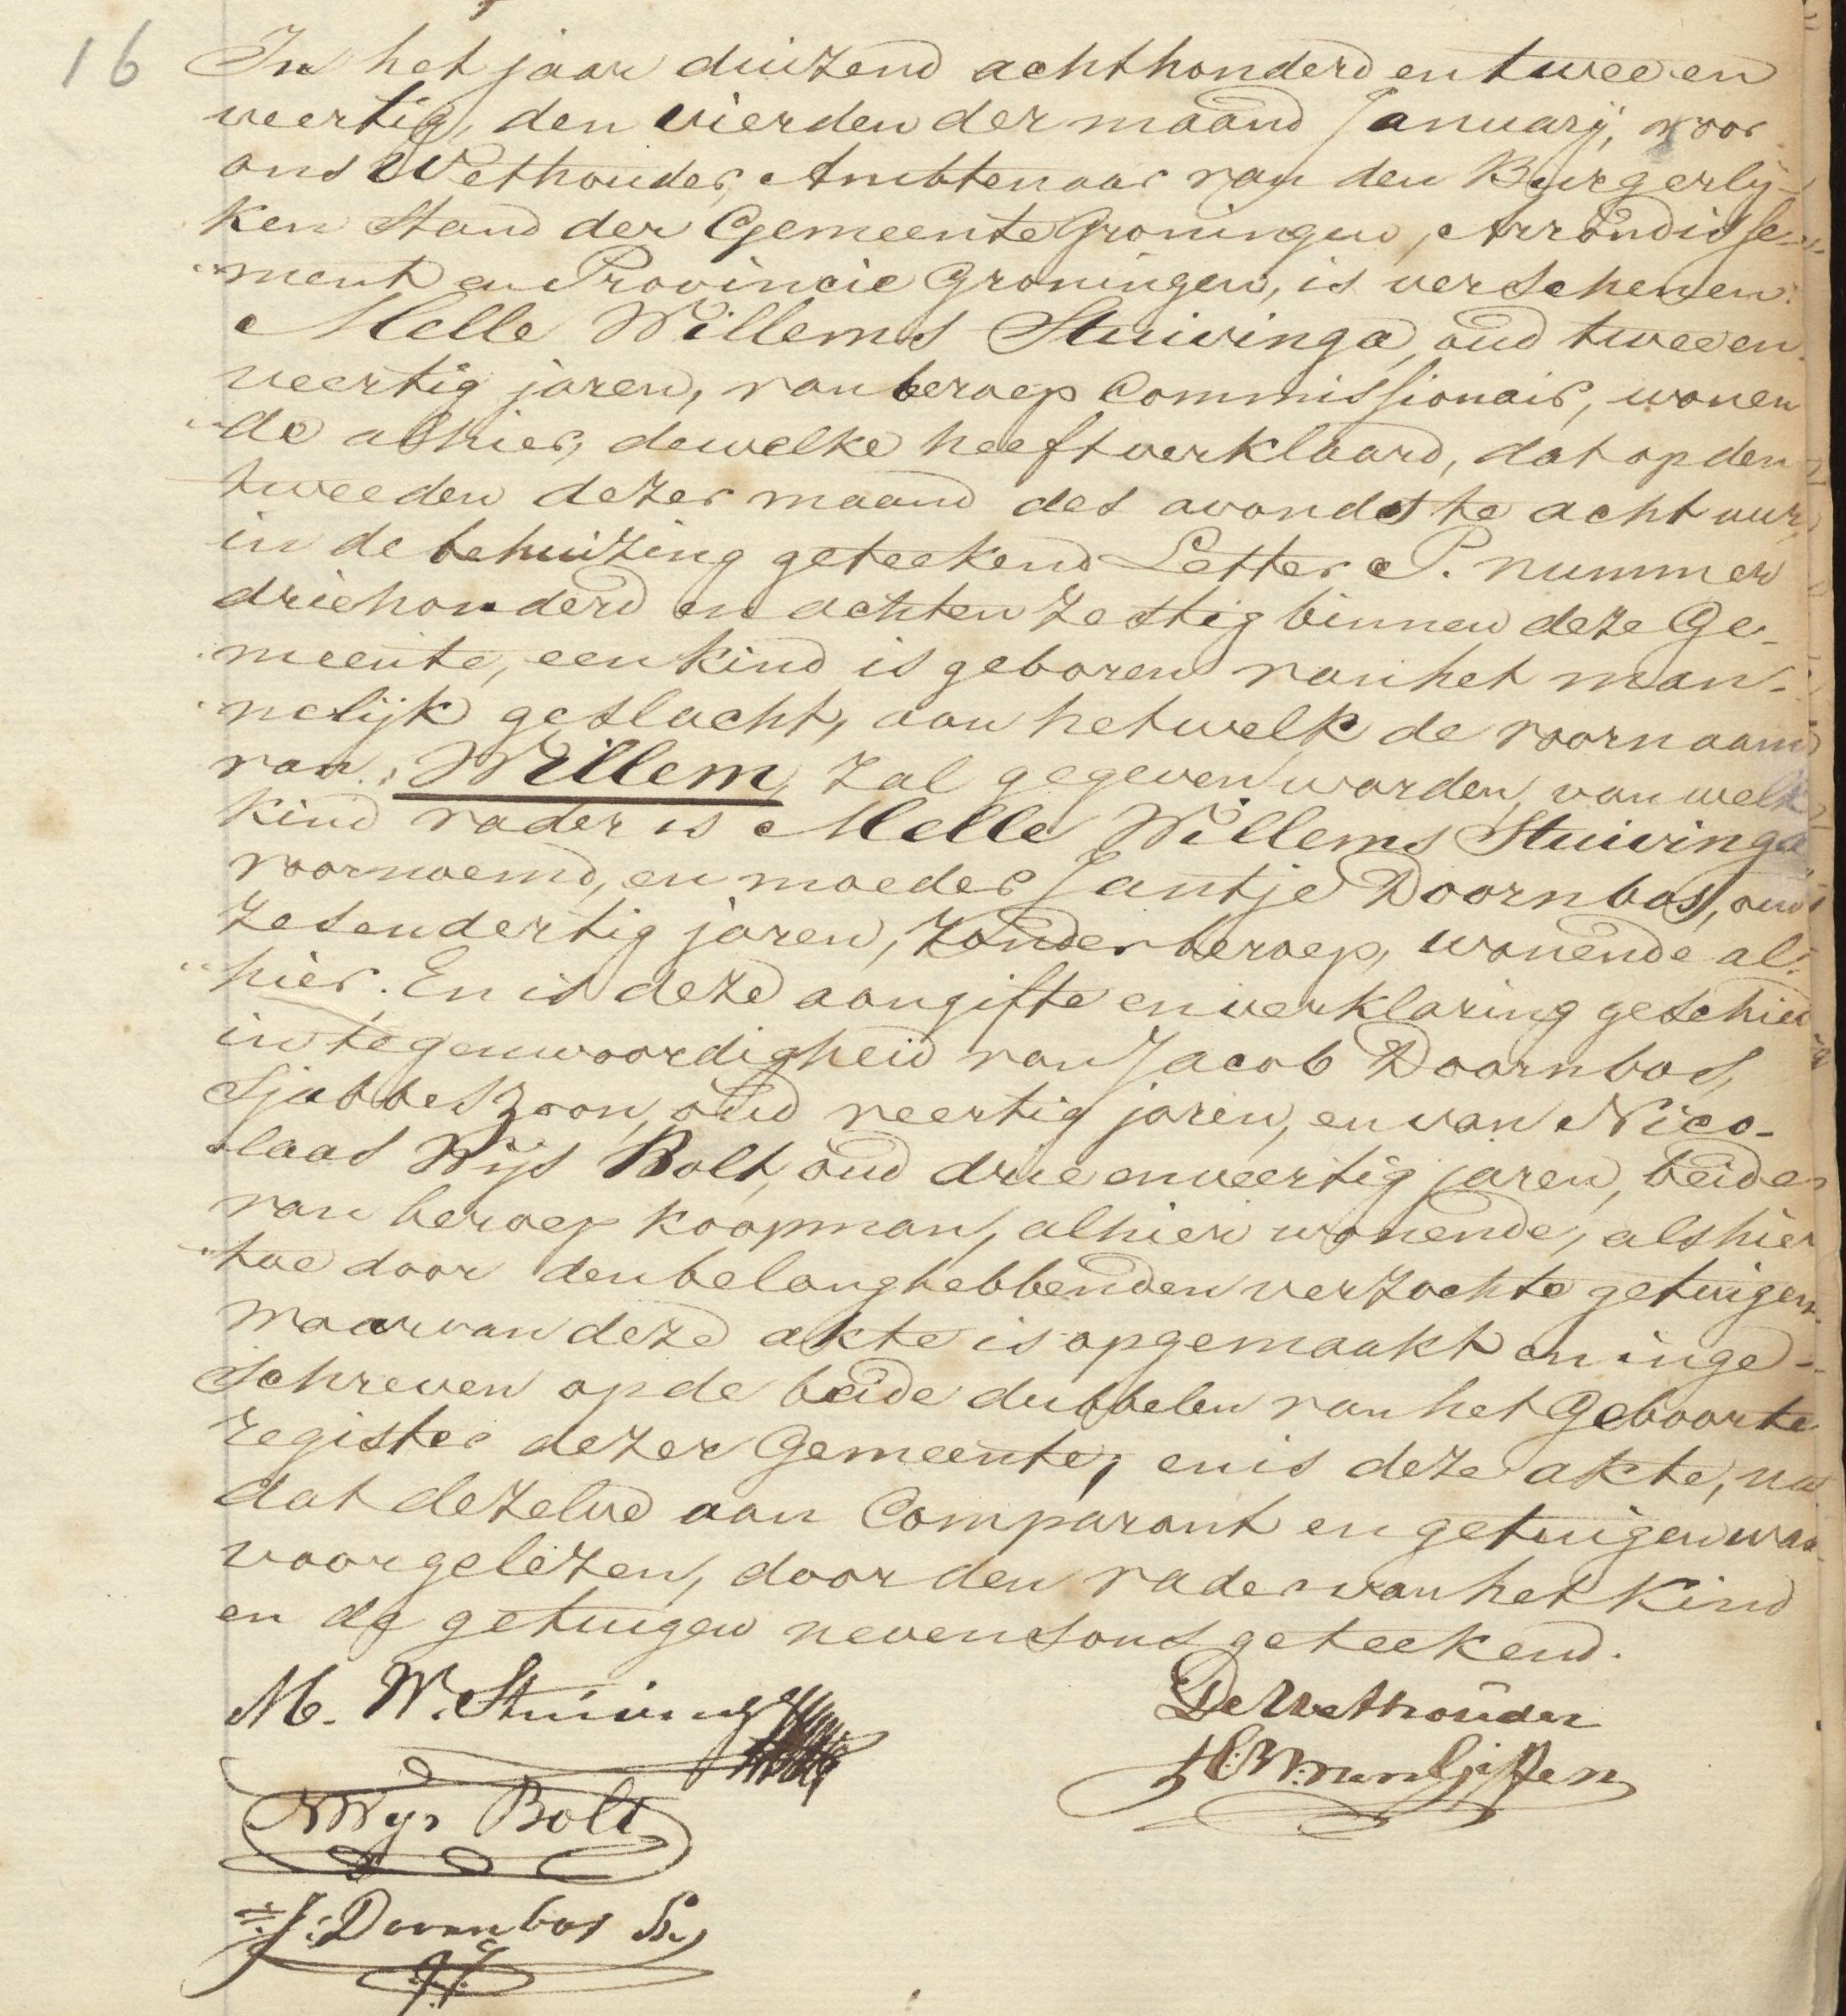 16
In het jaar duizend achthonderd en twee en
veertig, den vierden der maand January, voor
ons Wethouder, Ambtenaar van den Burgerlij-
ken Stand der Gemeente Groningen, Arrondisse-
ment en Provincie Groningen, is verschenen:
Melle Willems Stuivinga, oud twee en
veertig jaren, van beroep Commissionair, wonen
de alhier, dewelke heeft verklaard, dat op den
tweeden dezer maand des avonds te acht uur,
in de behuizing geteekend Letter P. nummer
driehonderd en achtenzestig binnen deze Ge-
meente, een kind is geboren van het man-
nelijk geslacht, aan hetwelk de voornaam
van Willem, zal gegeven worden, van welk
kind vader is Melle Willems Stuivinga
voornoemd, en moeder Jantje Doornbos, oud
zesendertig jaren, zonder beroep, wonende al-
hier. En is deze aangifte en verklaring geschied
in tegenwoordigheid van Jacob Doornbos,
Sjabbeszoon, oud veertig jaren, en van Nico-
laas Wijs Bolt, oud drie en veertig jaren, beide
van beroep koopman, alhier wonende, als hier
toe door den belanghebbenden verzochte getuigen.
Waarvan deze akte is opgemaakt en inge-
schreven op de beide dubbelen van het Geboorte
register dezer Gemeente, en is deze akte, na
dat dezelve aan Comparant en getuigen was
voorgelezen, door den vader van het kind
en de getuigen nevens ons geteekend.
M. W. Stuivinga
De Wethouder
H. W. van Giffen
N Wijs Bolt
J. Doornbos Sz